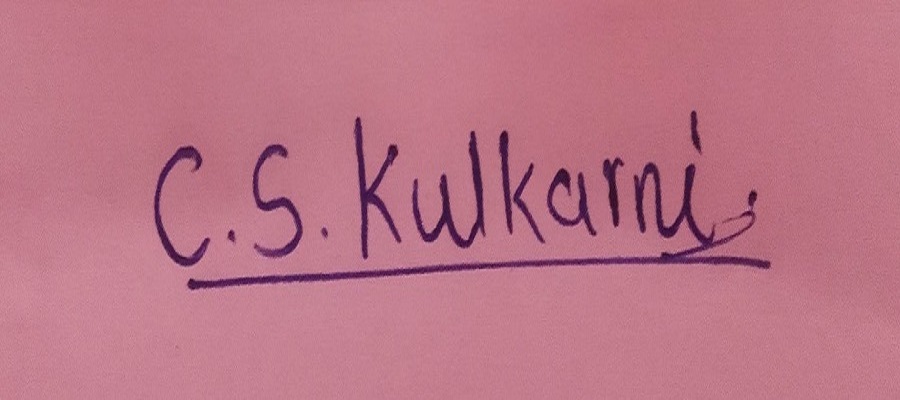 C. S. Kulkarni